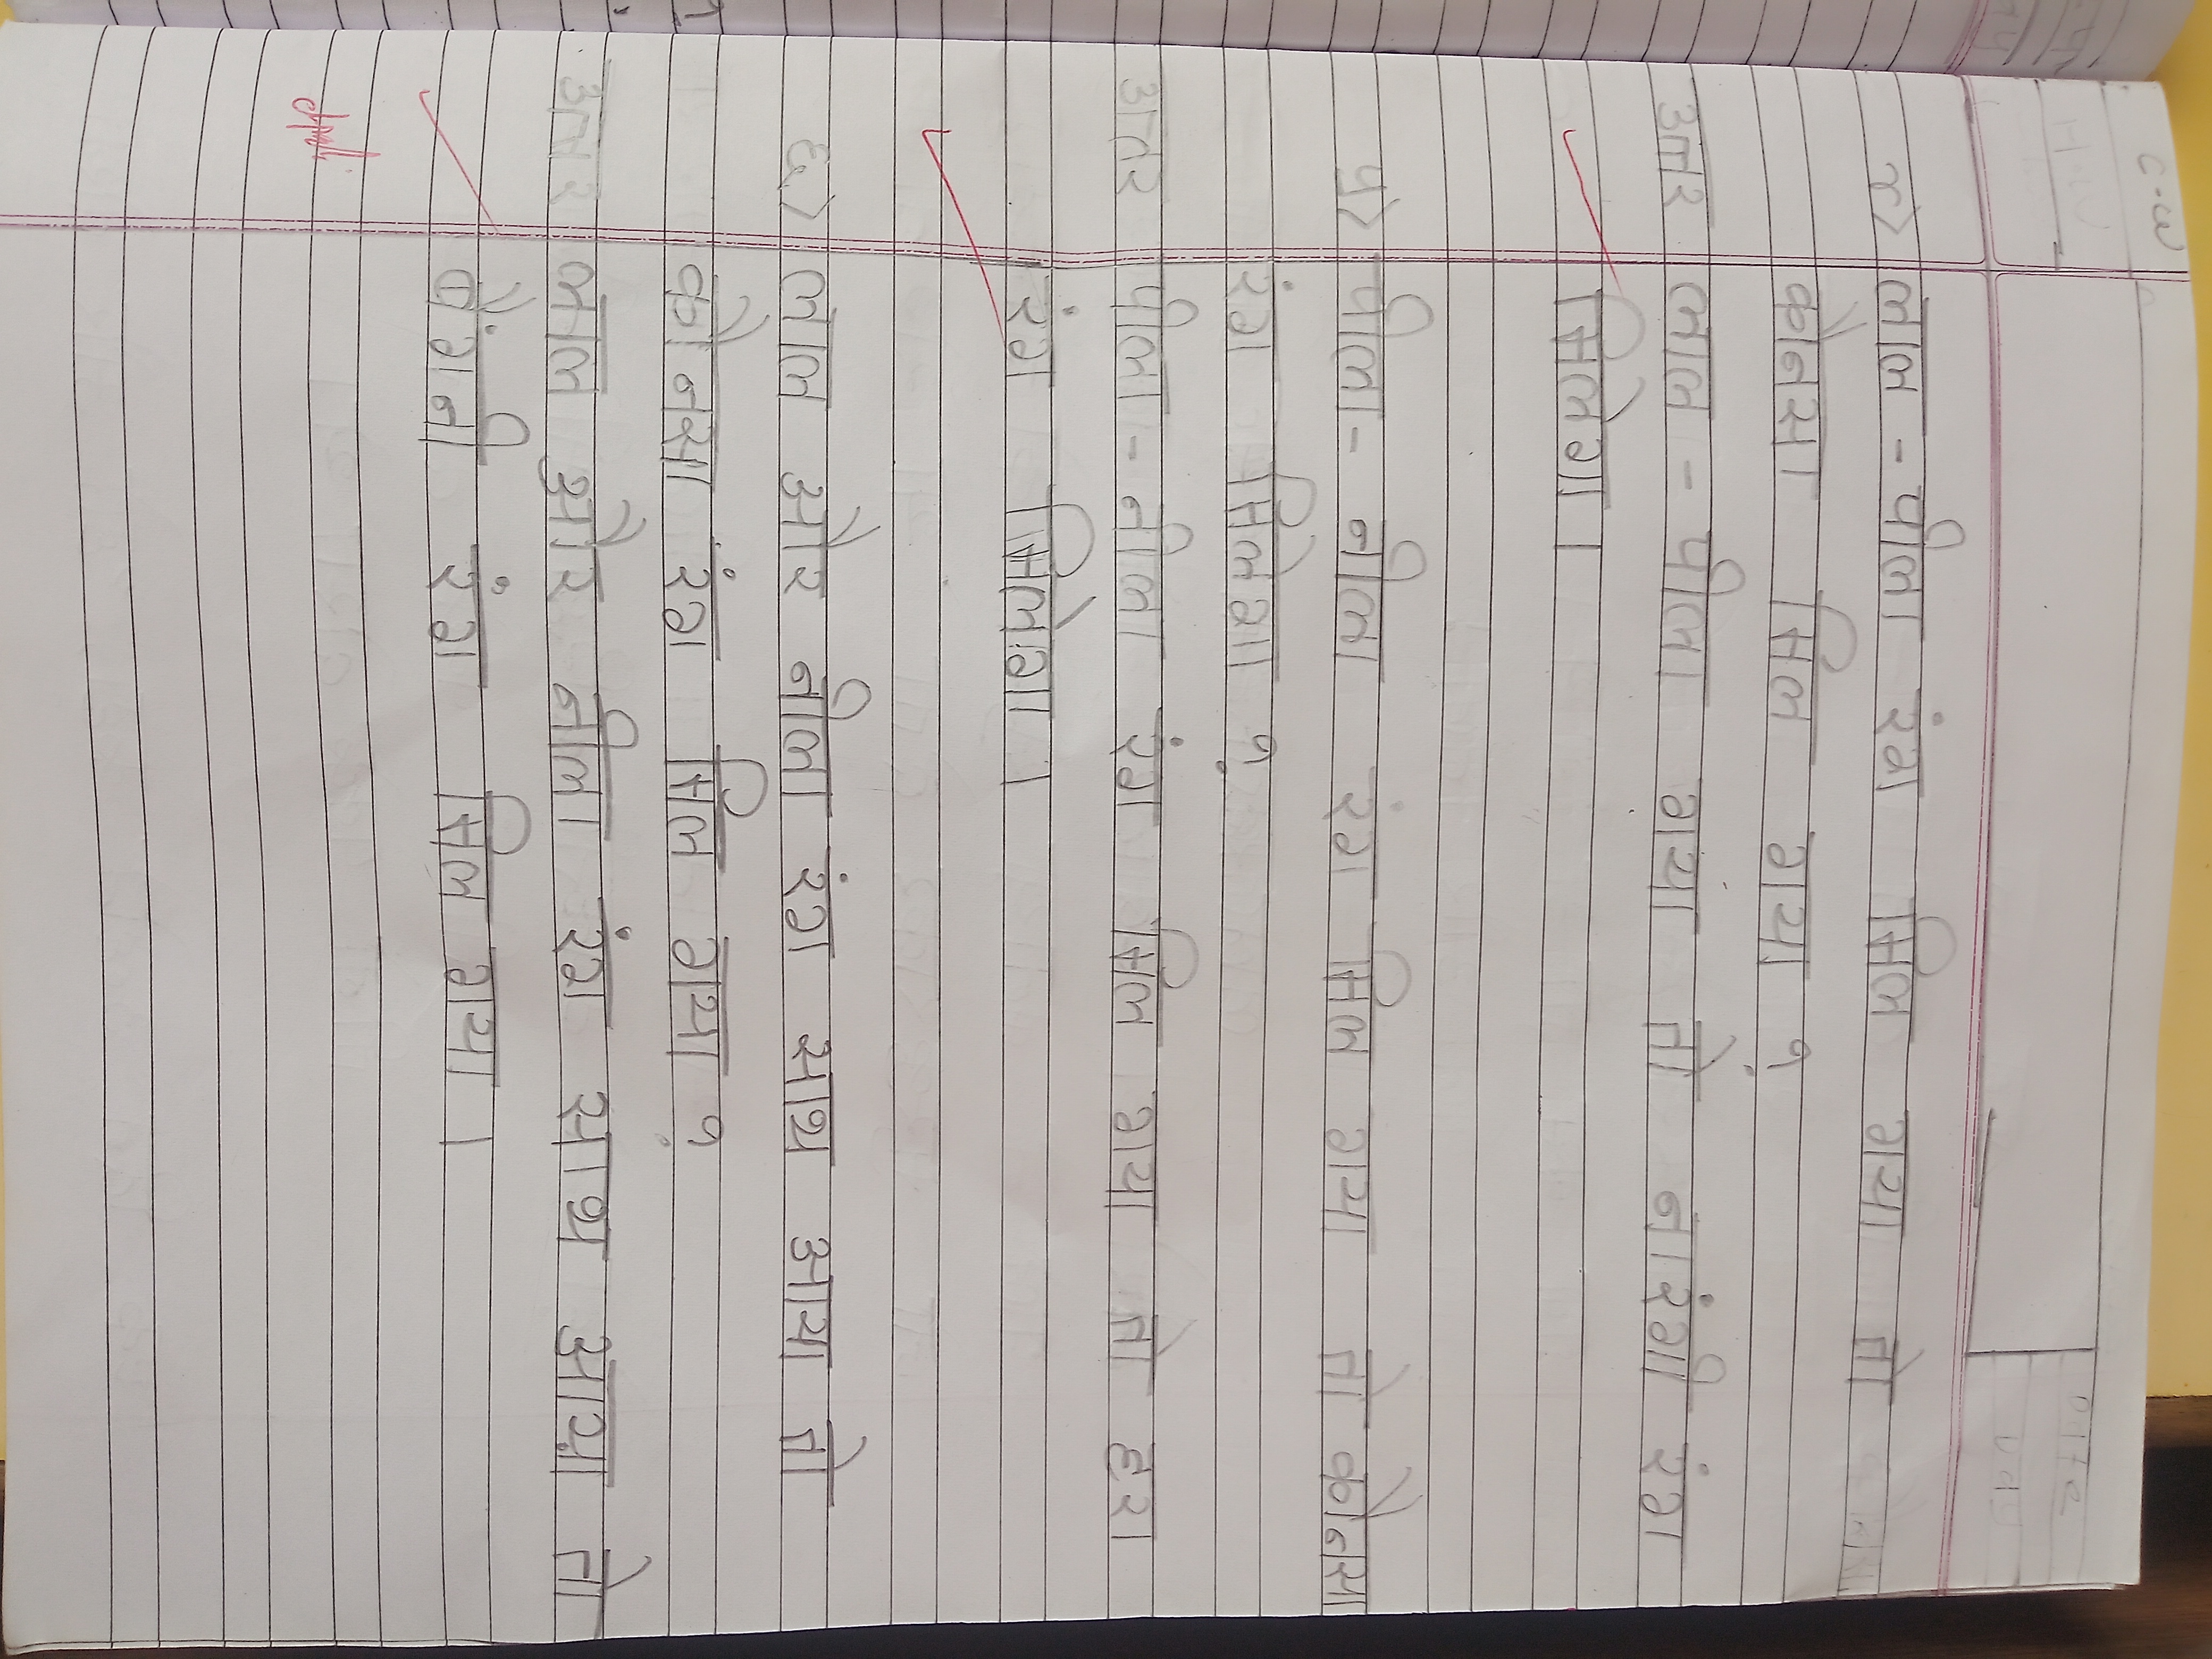 C-W
H.W
४> लाल - पीला रंग मिल गया तो
कौनसा मिल गाया ?
उतर लाल - पीला गाया तो नारंगी रंग
मिलेगा ।
५> पीला - नीला रंग मिल गाया तो कौनसा
रंग मिलेगा ?
उतर पीला - नीला रंग मिल गाया तो हरा
रंग मिलेगा ।
६> लाल और नीला रंग साथ आया तो
कौनसा रंग मिल गाया ?
उतर लाल और नीला रंग साथ आया तो
बैंगनी रंग मिल गाया ।